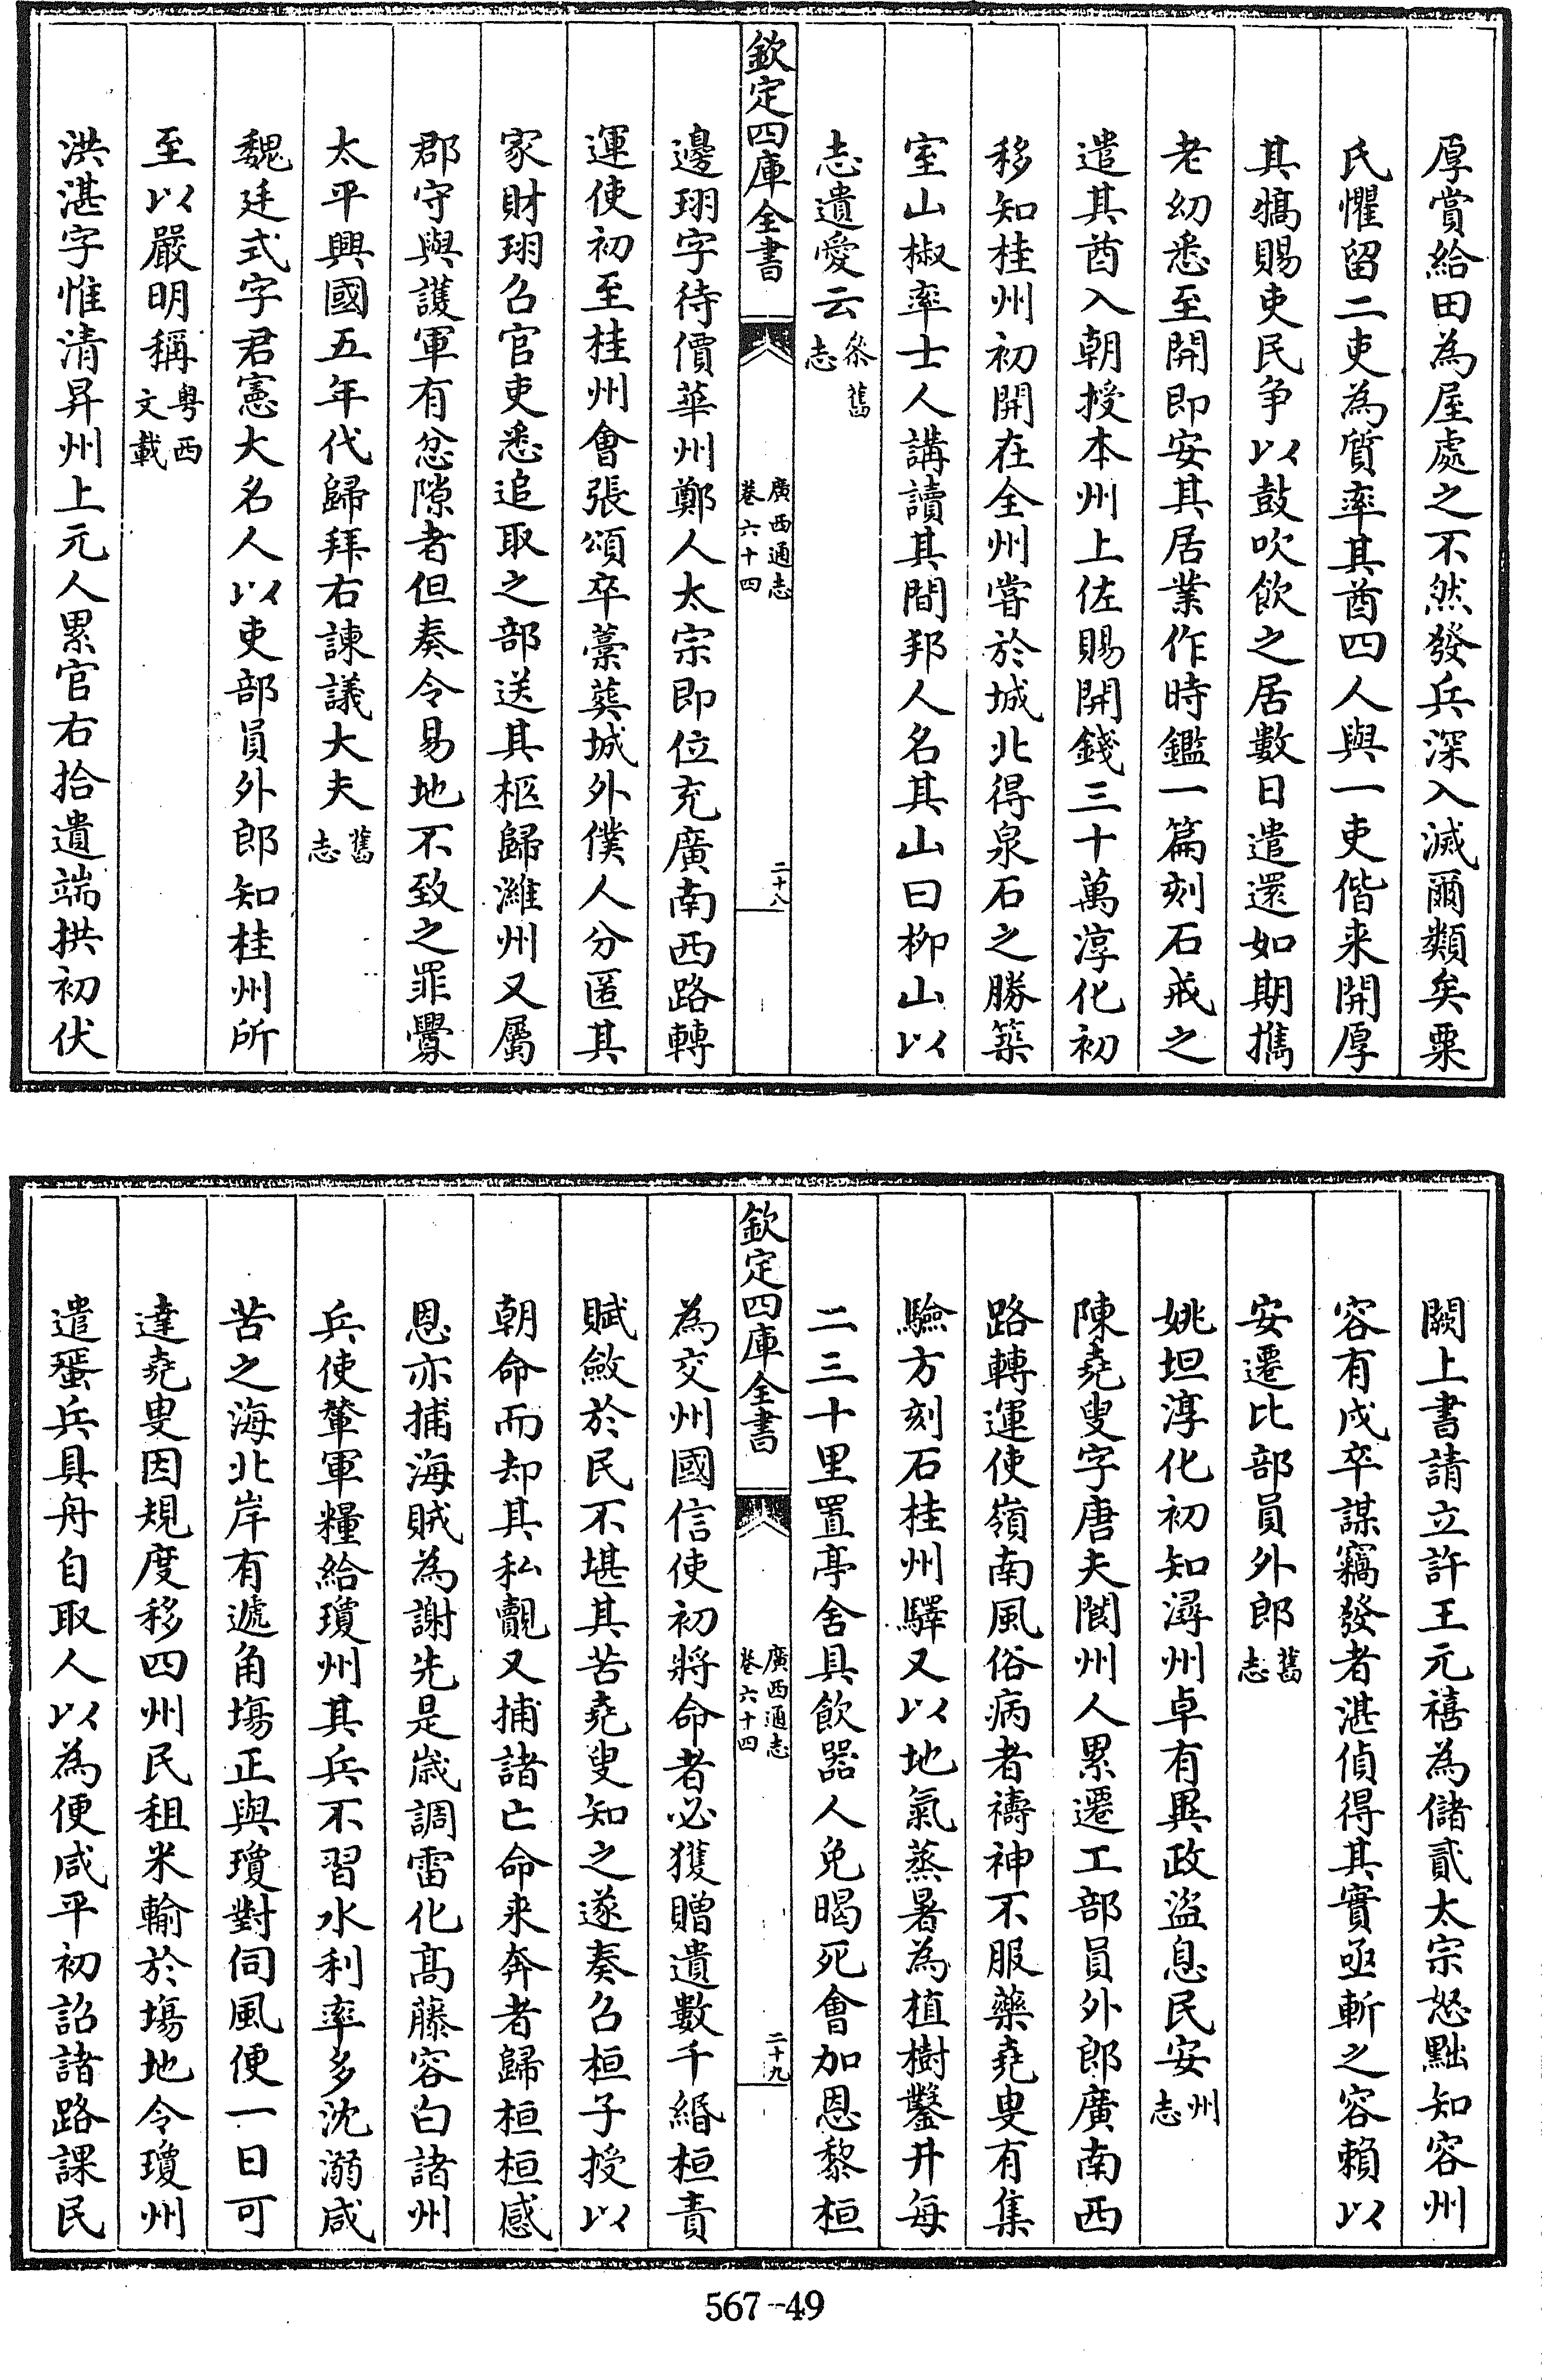 厚賞給田為屋處之不然發兵深入滅爾類矣粟
氏懼留二吏為質率其酋四人與一吏偕来開厚
其犒賜吏民争以鼓吹飲之居數日遣還如期攜
老幼悉至開即安其居業作時鑑一篇刻石戒之
遣其酋入朝授本州上佐賜開錢三十萬淳化初
移知桂州初開在全州嘗於城北得泉石之勝築
室山椒率士人講讀其間邦人名其山曰柳山以
志遺愛云叅舊志
欽定四庫全書
廣西通志
卷六十四
二十八
邊珝字待價華州鄭人太宗即位充廣南西路轉
運使初至桂州會張頌卒藁葬城外僕人分匿其
家財珝召官吏悉追取之部送其柩歸濰州又屬
郡守與護軍有忿隙者但奏令易地不致之罪釁
太平興國五年代歸拜右諫議大夫舊志
魏廷式字君憲大名人以吏部員外郎知桂州所
至以嚴明稱粤西文載
洪湛字惟清昇州上元人累官右拾遺端拱初伏
闕上書請立許王元禧為儲貳太宗怒黜知容州
容有戍卒謀竊發者湛偵得其實亟斬之容賴以
安遷比部員外郎舊志
姚坦淳化初知潯州卓有異政盜息民安州志
陳堯叟字唐夫閬州人累遷工部員外郎廣南西
路轉運使嶺南風俗病者禱神不服藥堯叟有集
驗方刻石桂州驛又以地氣蒸暑為植樹鑿井每
二三十里置亭舍具飲器人免暍死會加恩黎桓
欽定四庫全書
廣西通志
卷六十四
二十九
為交州國信使初將命者必獲贈遺數千緡桓責
賦斂於民不堪其苦堯叟知之遂奏召桓子授以
朝命而却其私覿又捕諸亡命来奔者歸桓桓感
恩亦捕海賊為謝先是歲調雷化高藤容白諸州
兵使輦軍糧給瓊州其兵不習水利率多沈溺咸
苦之海北岸有遞角場正與瓊對伺風便一日可
達堯叟因規度移四州民租米輸於塲地令瓊州
遣蜑兵具舟自取人以為便咸平初詔諸路課民
567-49